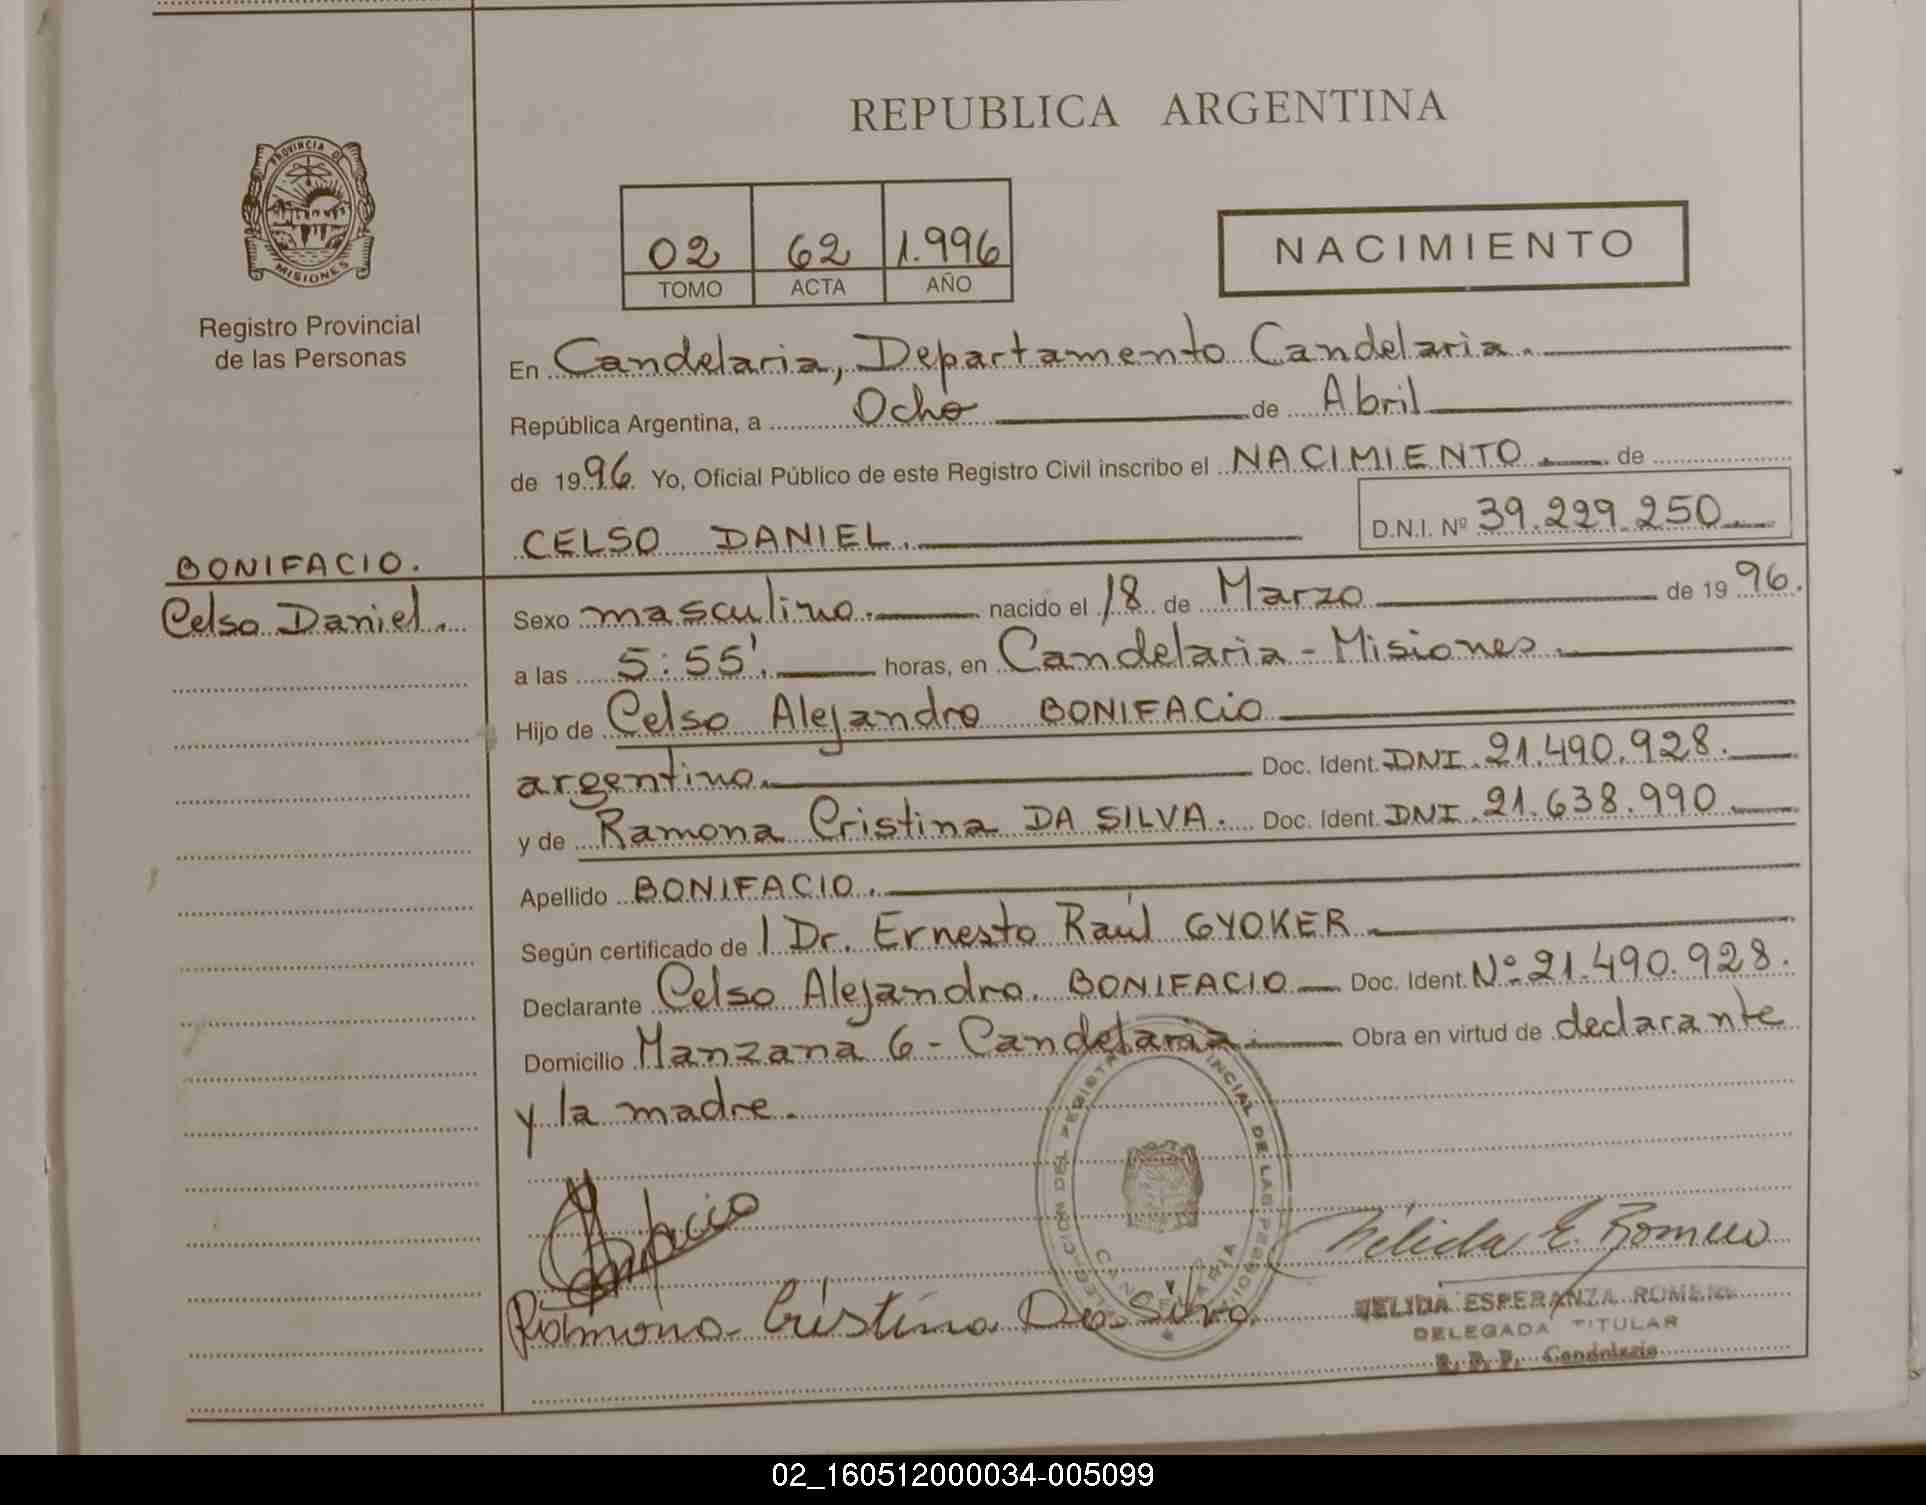 REPUBLICA ARGENTINA
PROVINCIA DE
MISIONES
Registro Provincial
de las Personas
02 62 1.996
TOMO ACTA AÑO
NACIMIENTO
En Candelaria, Departamento Candelaria.
República Argentina, a Ocho de Abril
de 1996. Yo, Oficial Público de este Registro Civil inscribo el NACIMIENTO. de
CELSO DANIEL. D.N.I. Nº 39.229.250
BONIFACIO.
Celso Daniel.
Sexo masculino. nacido el 18 de Marzo de 1996.
a las 5:55'. horas, en Candelaria - Misiones.
Hijo de Celso Alejandro BONIFACIO
argentino. Doc. Ident. DNI. 21.490.928.
y de Ramona Cristina DA SILVA. Doc. Ident. DNI. 21.638.990
Apellido BONIFACIO.
Según certificado de l Dr. Ernesto Raúl GYOKER
Declarante Celso Alejandro. BONIFACIO Doc. Ident. Nº 21.490.928.
Domicilio Manzana 6 - Candelaria. Obra en virtud de declarante
y la madre.
Nélida E. Romero
Ramona Cristina Da Silva
NELIDA ESPERANZA ROMERO
DELEGADA TITULAR
R. P. P. Candelaria
02_160512000034-005099